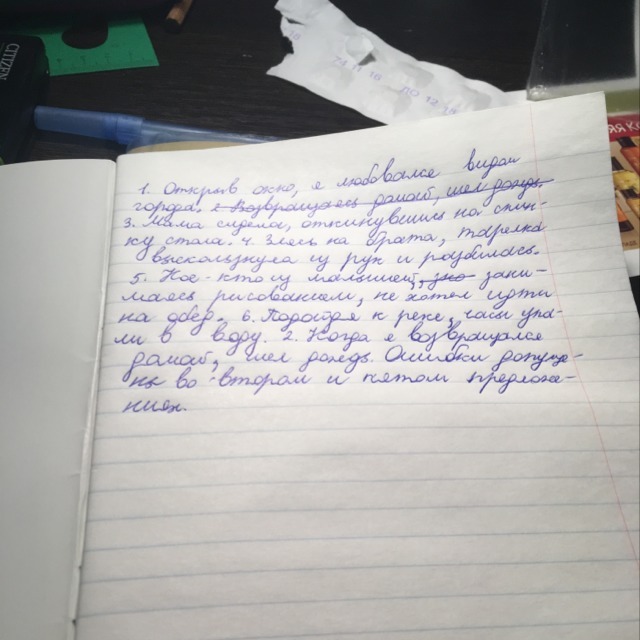 CITIZEN
1. Открыв окно, я любовался видом
города. 2. Возвращаясь домой, шел дождь.
3. Мама сидела, откинувшись на спин-
ку стала. 4. Злясь на брата, тарелка
выскользнула из рук и разбилась.
5. Кое-кто из малышей, зани-
маясь рисованием, не хотел идти
на обед. 6. Подойдя к реке, часы упа-
ли в воду. 2. Когда я возвращался
домой, шел дождь. Ошибки допуще-
ны во втором и пятом предложе-
ниях.